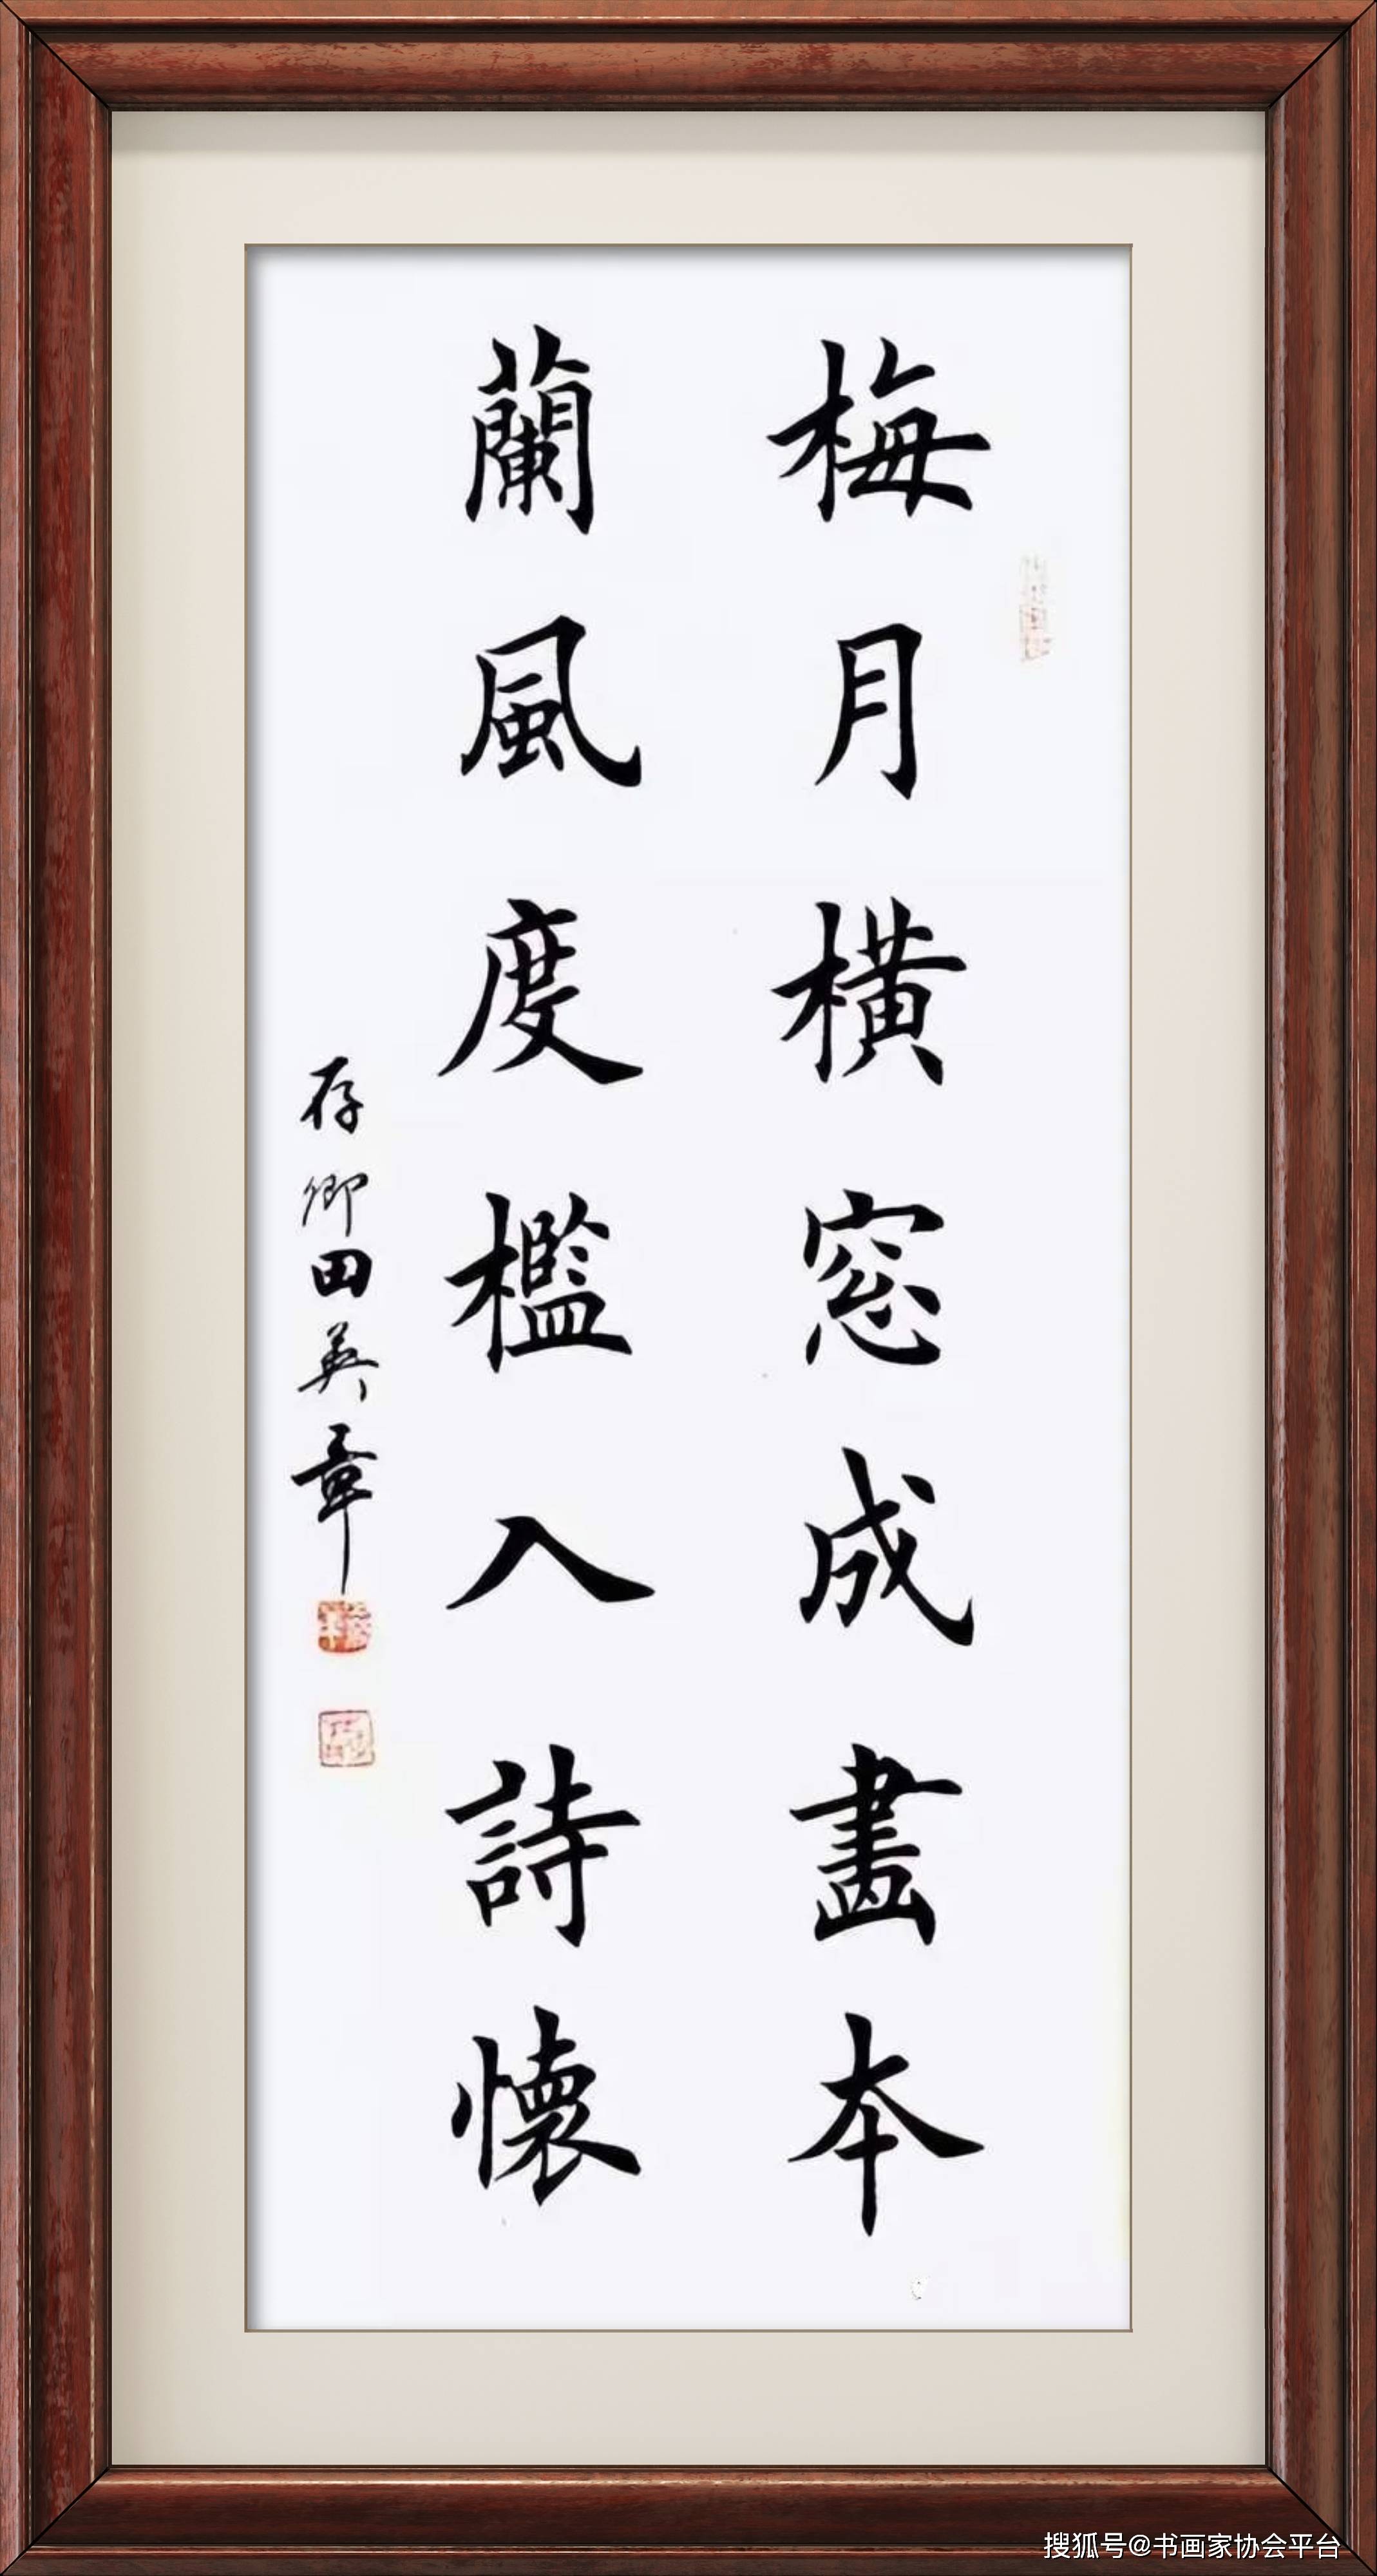 梅月橫窓成畫本
蘭風度檻入詩懷
存卿田英章
搜狐号@书画家协会平台